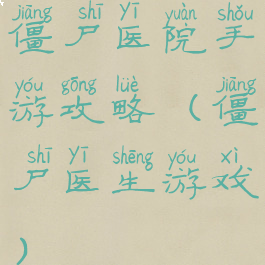 jiāng shī yī yuàn shǒu
僵尸医院手
yóu gōng lüè jiāng
游攻略(僵
shī yī shēng yóu xì
尸医生游戏
)